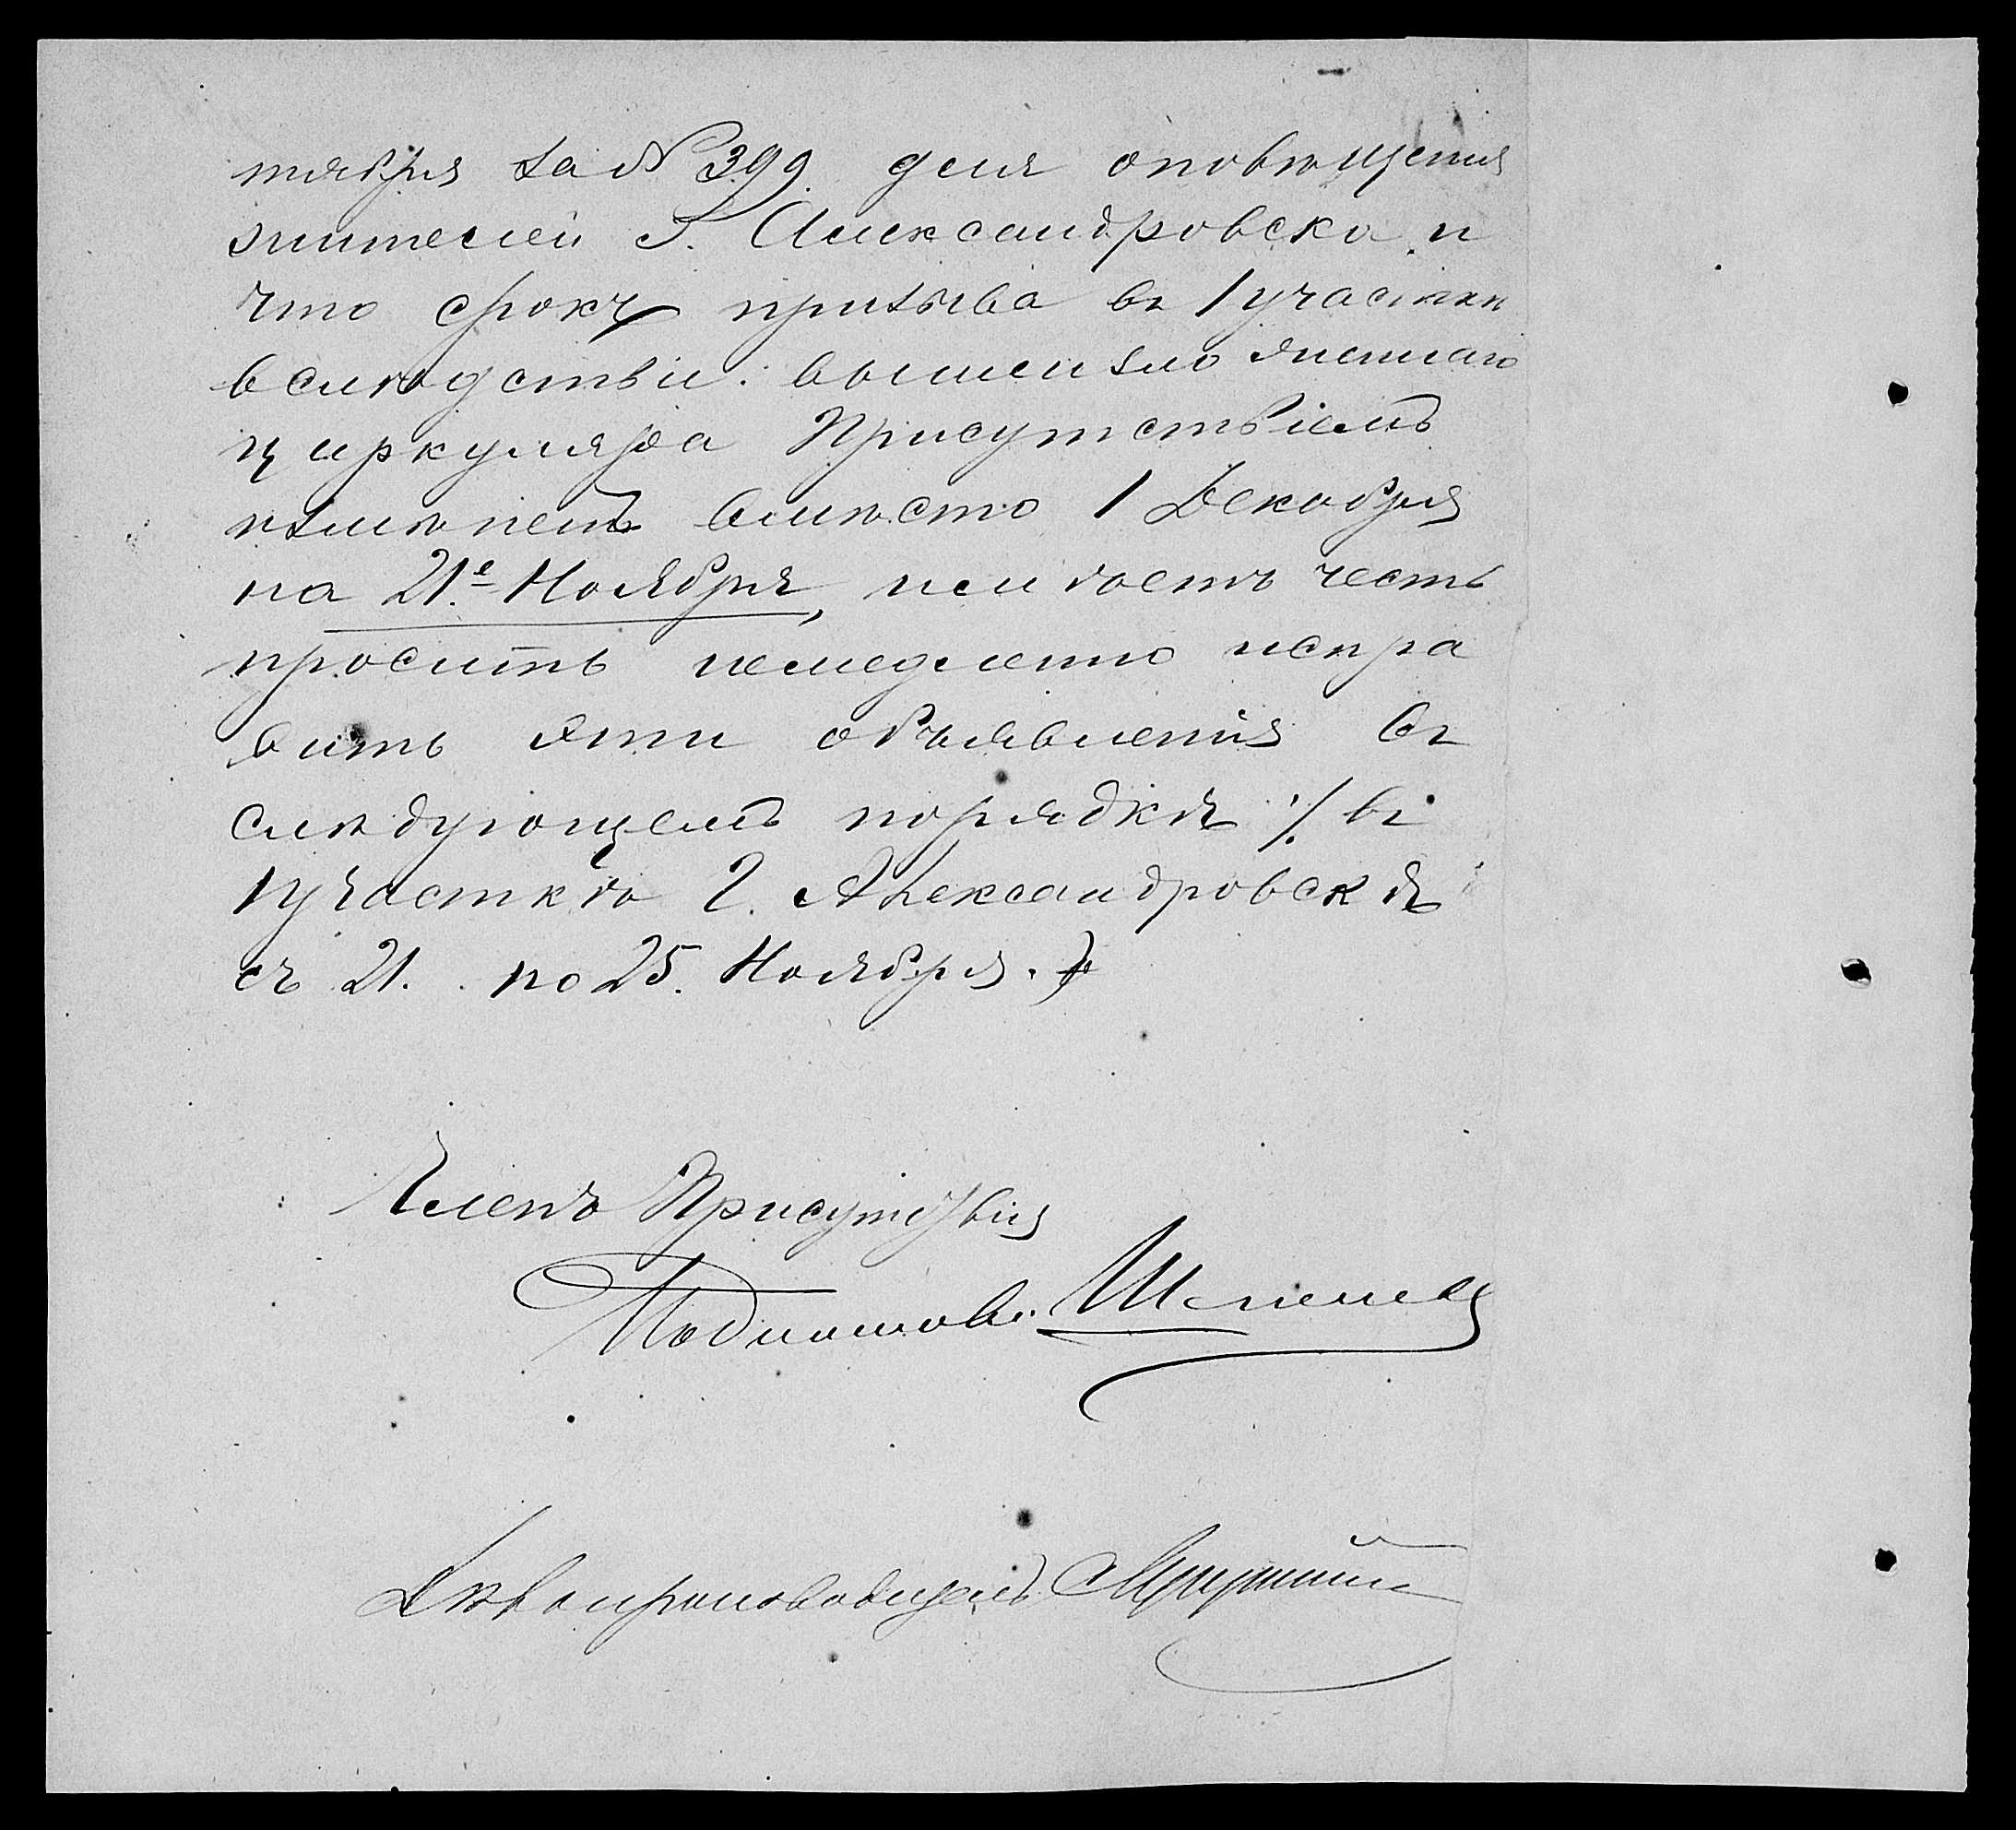 тября за № 399. для оповѣщенія
жителей г. Александровска и
что срокъ призыва въ 1 участкѣ
вслѣдствіи вышеизложеннаго
циркуляра Присутствіемъ
измѣненъ вмѣсто 1 Декабря
на 21.е Ноября, имѣетъ честь
просить немедленно испра
вить эти объявленія въ
слѣдующемъ порядкѣ ./. въ
1 участкѣ г. Александровскѣ
съ 21. по 25. Ноября.
Членъ Присутствія
Дѣлопроизводитель